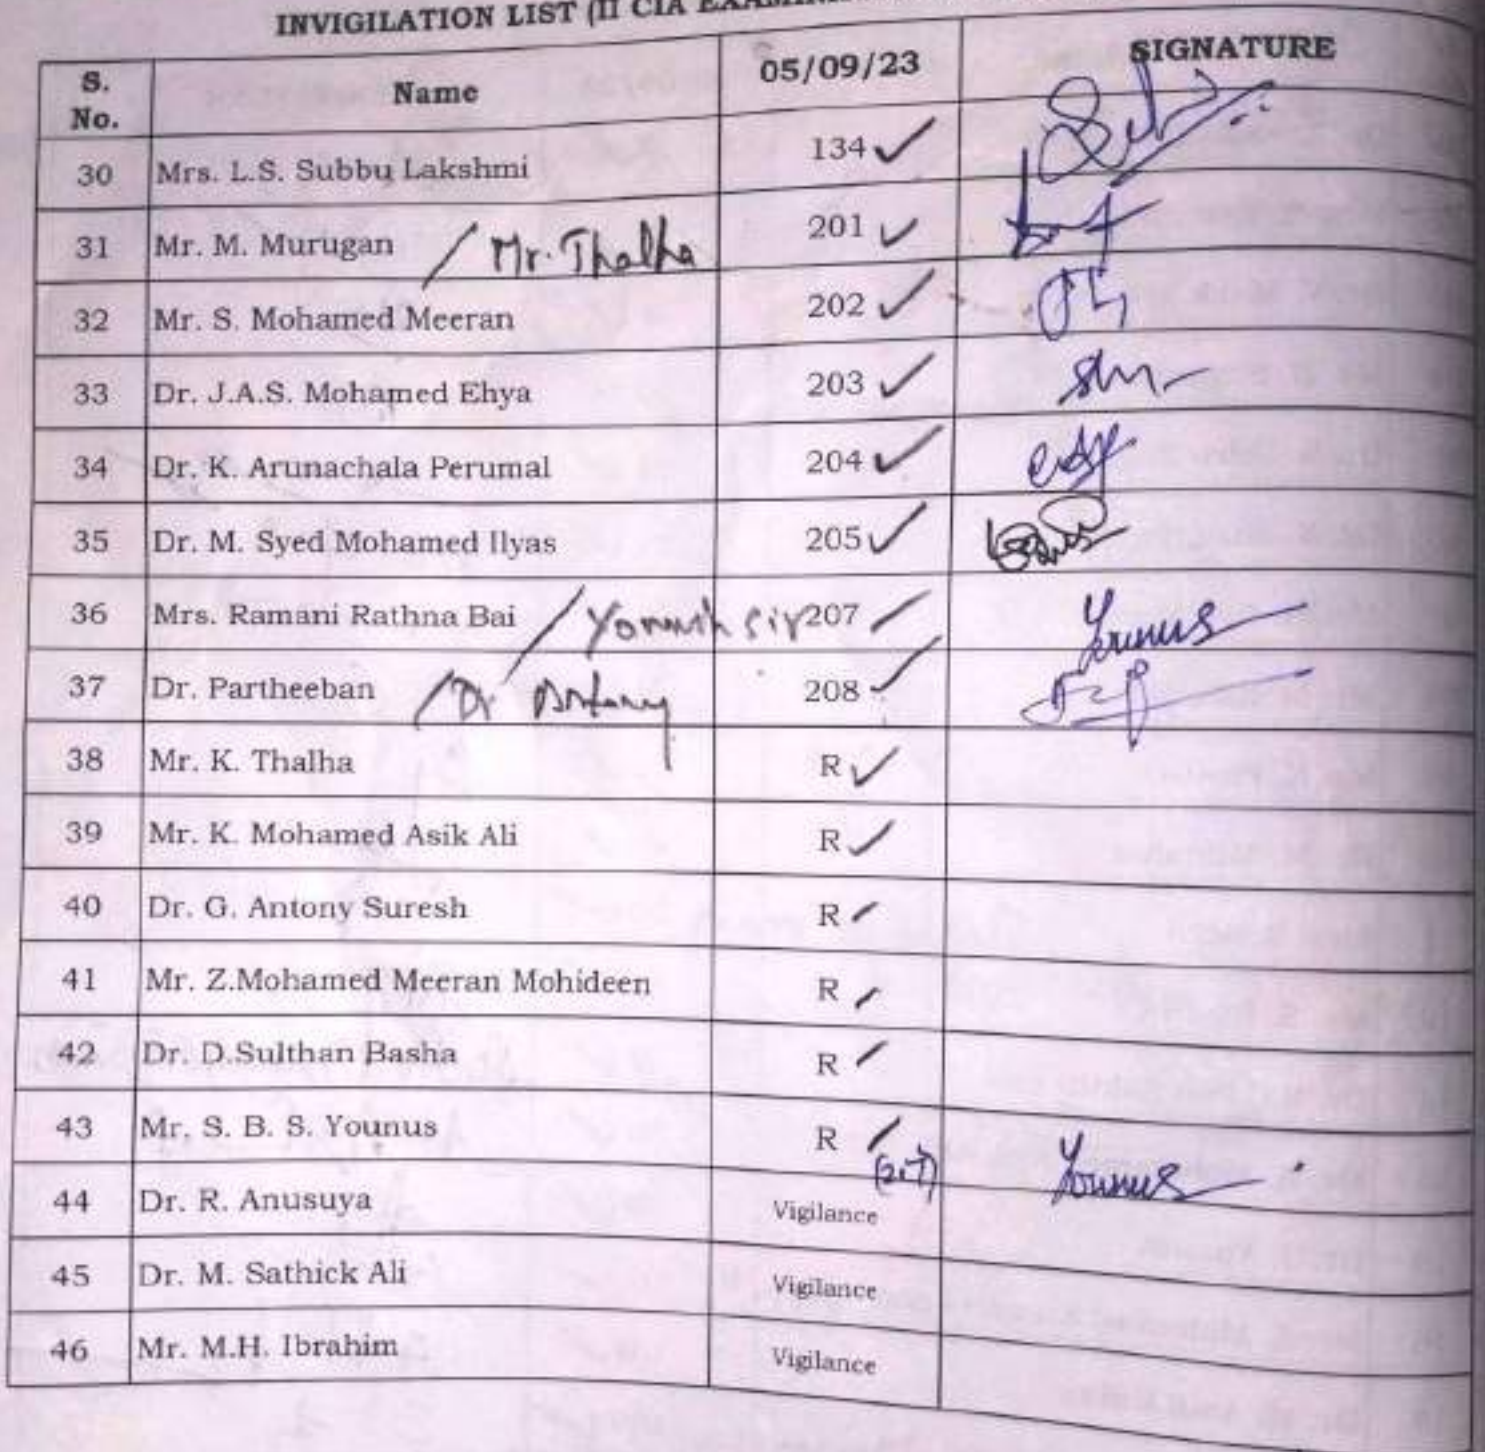 INVIGILATION LIST (II CIA
S. No. Name 05/09/23 SIGNATURE
30 Mrs. L.S. Subbu Lakshmi 134 ✓
31 Mr. M. Murugan / Mr. Thalha 201 ✓
32 Mr. S. Mohamed Meeran 202 ✓
33 Dr. J.A.S. Mohamed Ehya 203 ✓
34 Dr. K. Arunachala Perumal 204 ✓
35 Dr. M. Syed Mohamed Ilyas 205 ✓
36 Mrs. Ramani Rathna Bai / sir 207 Younus
37 Dr. Partheeban / Dr 208 ✓
38 Mr. K. Thalha R ✓
39 Mr. K. Mohamed Asik Ali R ✓
40 Dr. G. Antony Suresh R
41 Mr. Z.Mohamed Meeran Mohideen R
42 Dr. D.Sulthan Basha R
43 Mr. S. B. S. Younus R (207) Younus
44 Dr. R. Anusuya Vigilance
45 Dr. M. Sathick Ali Vigilance
46 Mr. M.H. Ibrahim Vigilance